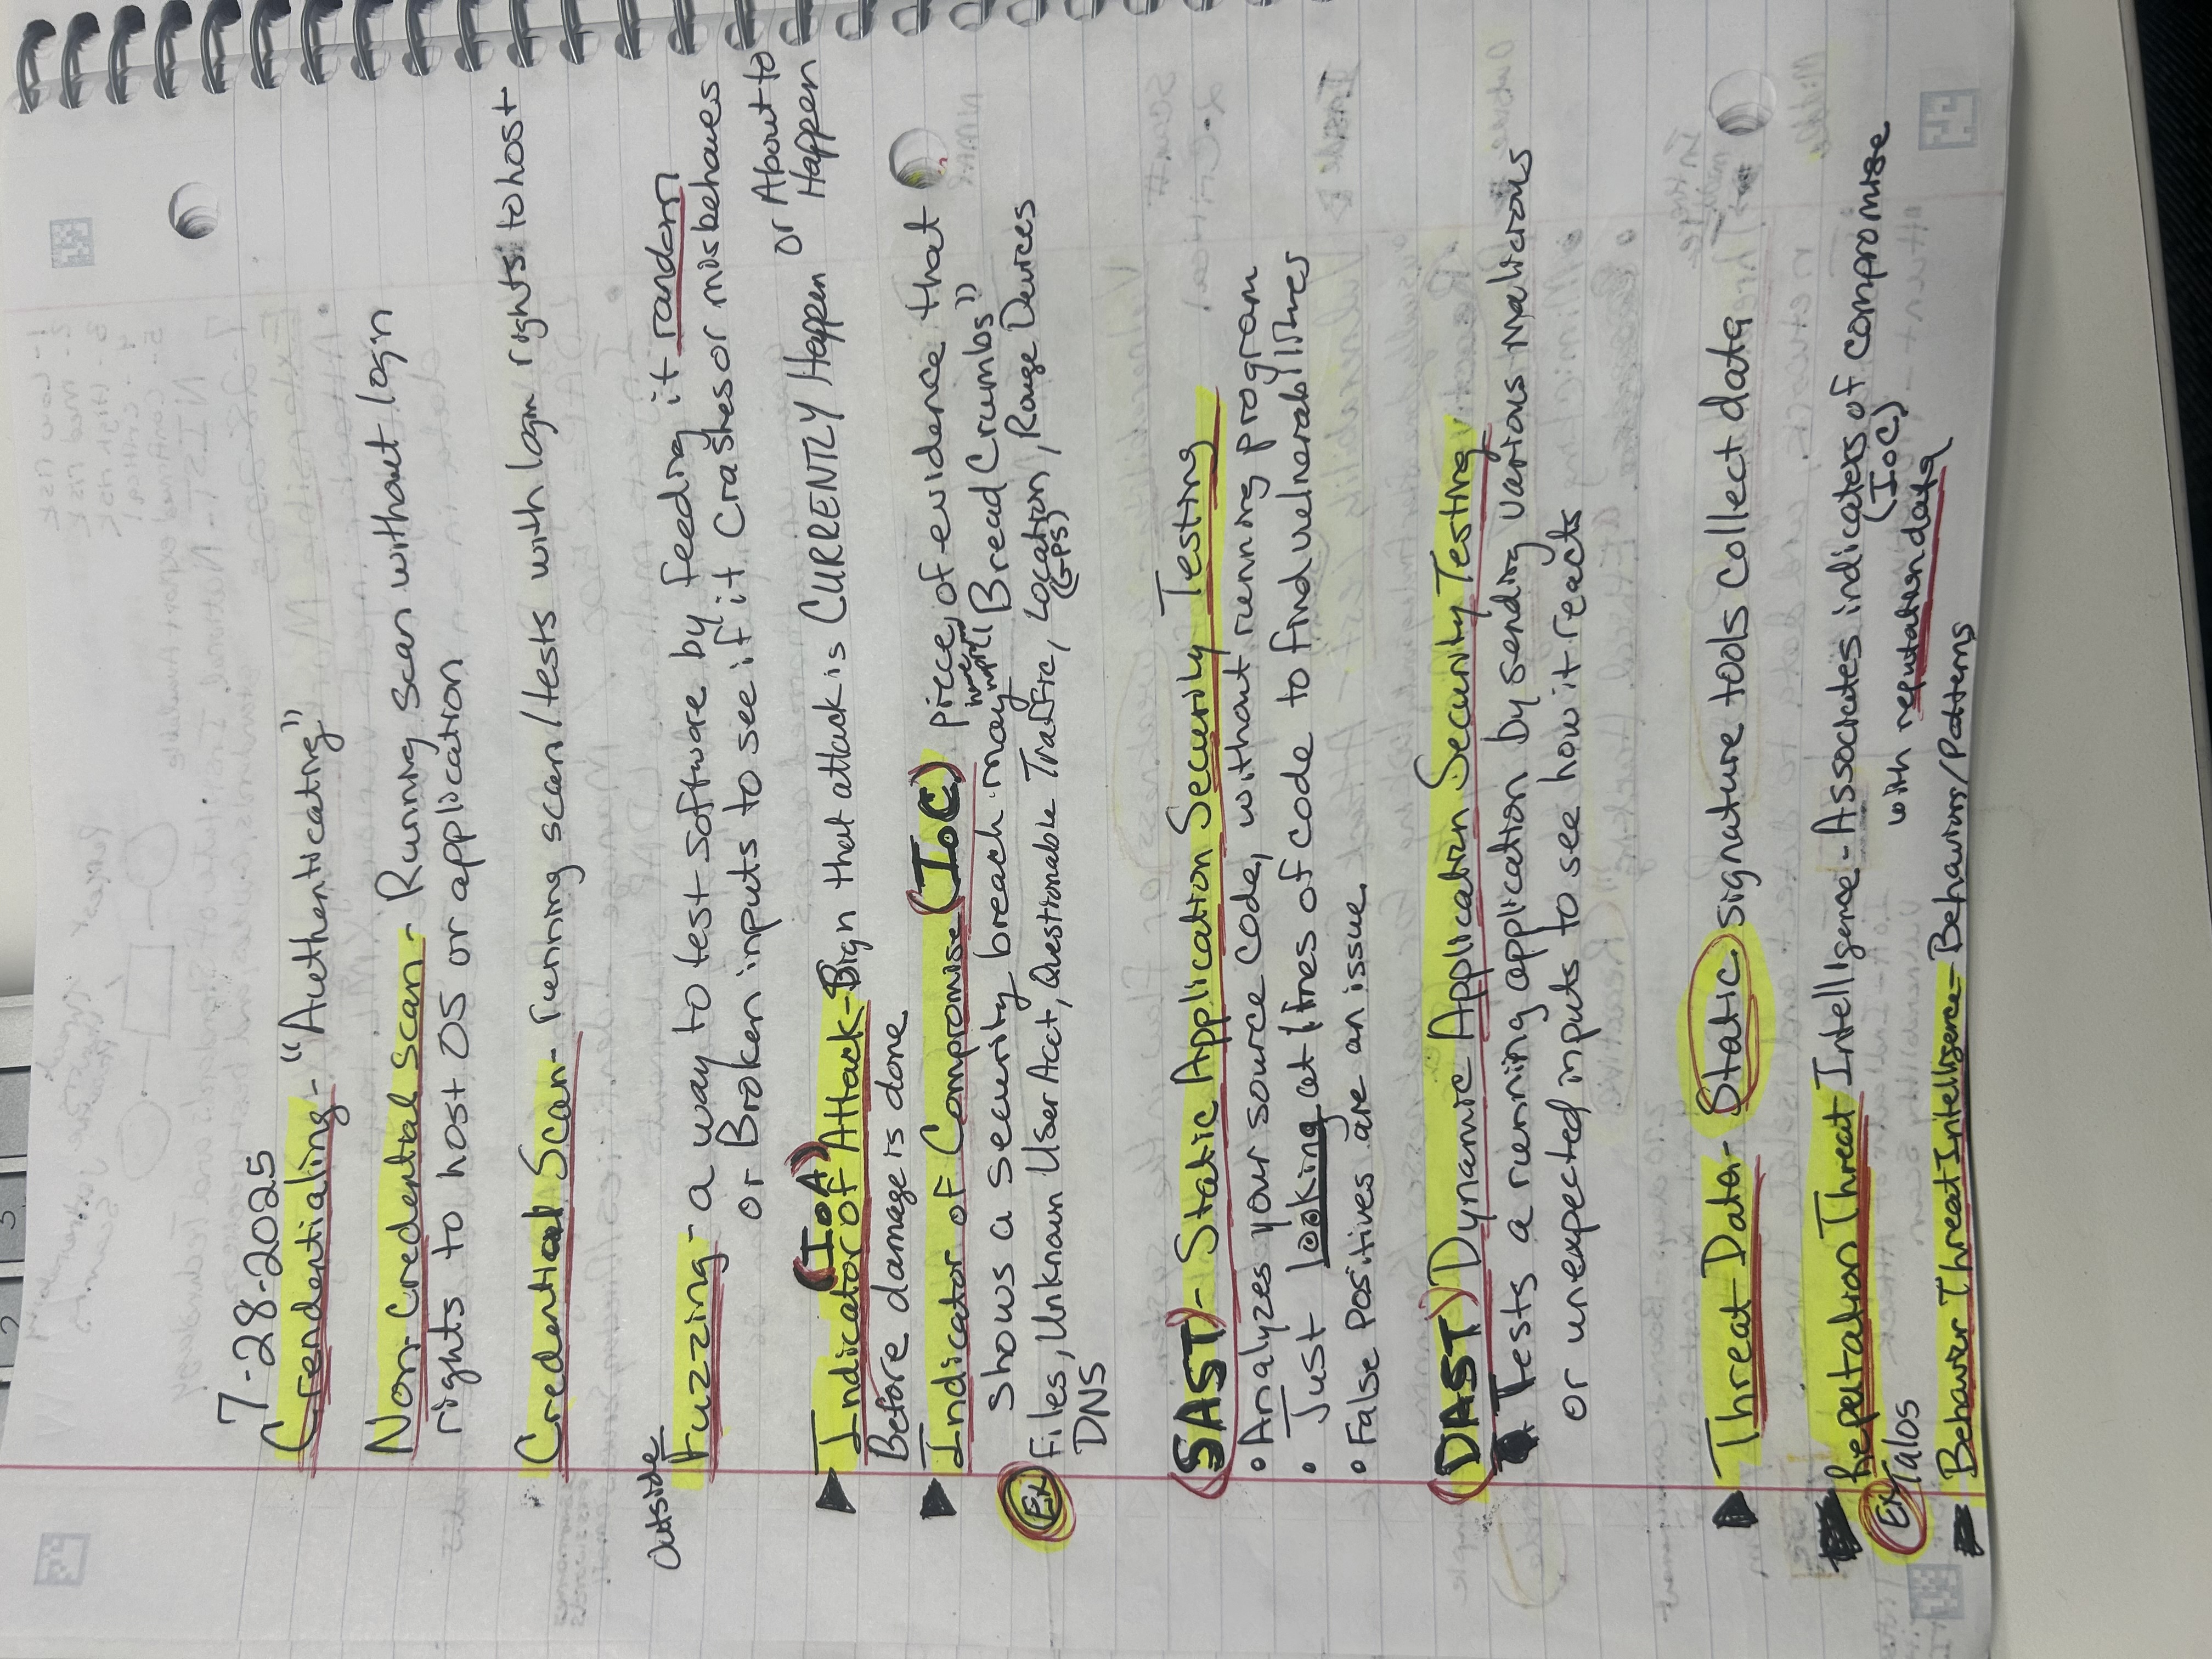 7-28-2025
Crendentialing - "Authenticating"
Non-Credential Scan - Running scan without login
rights to host OS or application
Credential Scan - running scan/tests with login rights to host
Outside
Fuzzing - a way to test software by feeding it random
or Broken inputs to see if it Crashes or misbehaves
(IoA)
Indicator of Attack - Sign that attack is CURRENTLY Happen or About to Happen
Before damage is done
Indicator of Compromise (IoC) piece of evidence that
shows a security breach may have happened "Bread Crumbs"
Ex Files, Unknown User Acct, Questionable Traffic, Location (GPS), Rouge Devices
DNS
(SAST) - Static Application Security Testing
• Analyzes your source code, without running program
• Just looking at lines of code to find vulnerabilities
• False Positives are an issue
(DAST) Dynamic Application Security Testing
• Tests a running application by sending various malicious
or unexpected inputs to see how it reacts
Threat Data - Static signature tools collect data
Reputation Threat Intelligence - Associates indicators of compromise
(IoC)
with reputation data
Ex Talos
Behavior Threat Intelligence - Behaviors/Patterns